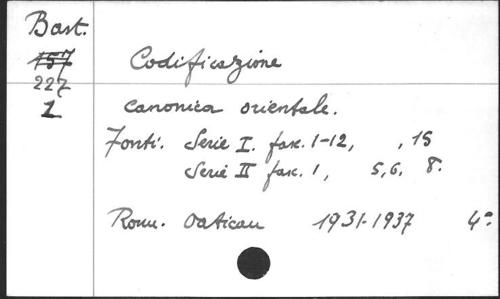 Bast.
157
227
1
Codificazione
canonica orientale.
Fonti. Serie I. fasc. 1-12, , 15
Serie II fasc. 1, 5,6. 8.
Rom. Vatican 1931-1937 4°